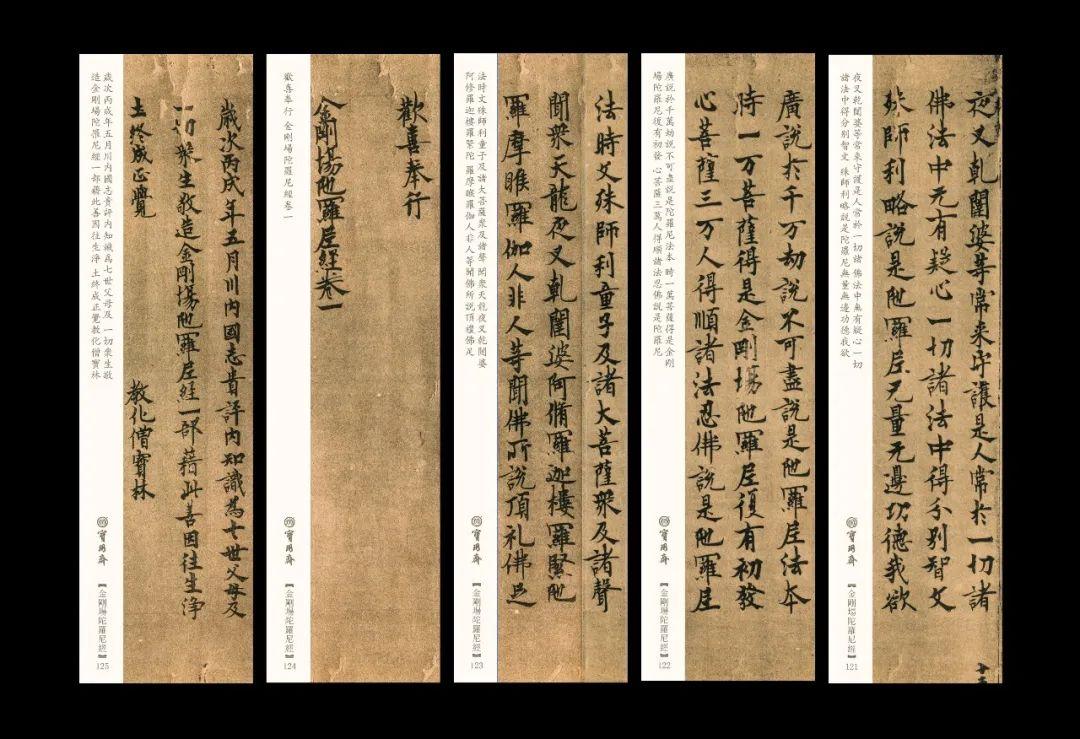 夜叉乾闥婆等常来守護是人常於一切諸
佛法中无有疑心一切諸法中得分别智文
殊師利略說是陁羅尼无量无邊功德我欲
十三
夜叉乾闥婆等常來守護是人常於一切諸 佛法中無有疑心一切
諸法中得分别智文 殊師利略説是陀羅尼無量無邊功德我欲
寶翔齋
【金剛場陀羅尼經】
121
廣說於千万劫說不可盡說是陁羅尼法本
時一万菩薩得是金剛場陁羅尼復有初發
心菩薩三万人得順諸法忍佛說是陁羅尼
廣説於千萬劫説不可盡説是陀羅尼法本 時一萬菩薩得是金剛
場陀羅尼復有初發 心菩薩三萬人得順諸法忍佛説是陀羅尼
寶翔齋
【金剛場陀羅尼經】
122
法時文殊師利童子及諸大菩薩衆及諸聲
聞衆天龍夜叉乾闥婆阿脩羅迦樓羅緊陁
羅摩睺羅伽人非人等聞佛所說頂礼佛足
法時文殊師利童子及諸大菩薩衆及諸聲 聞衆天龍夜叉乾闥婆
阿修羅迦樓羅緊陀 羅摩睺羅伽人非人等聞佛所説頂禮佛足
寶翔齋
【金剛場陀羅尼經】
123
歡喜奉行
金剛場陁羅尼經卷一
歡喜奉行 金剛場陀羅尼經卷一
寶翔齋
【金剛場陀羅尼經】
124
歲次丙戌年五月川内國志貴評内知識為七世父母及
一切衆生敬造金剛場陁羅尼經一部藉此善因往生浄
土終成正覺
教化僧寶林
歲次丙戌年五月川内國志貴評内知識爲七世父母及 一切衆生敬
造金剛場陀羅尼經一部藉此善因往生淨 土終成正覺教化僧寶林
寶翔齋
【金剛場陀羅尼經】
125